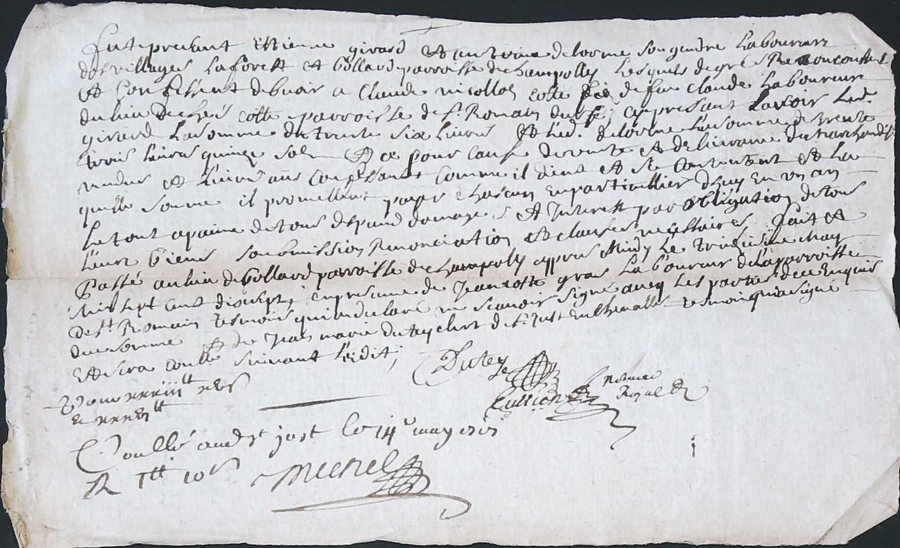 fut present ettiene girard et antoine delorme son gendre laboureurs
des villages laforest et bollard parroisse de champolly lesquels de gré
et confessent debvoir a claude nicollas coste fils de feu claude laboureur
du lieu de chés coste parroisse de st Romain a present scavoir led.
girard la somme de trente six livres et led. delorme la somme de trente
trois livres quinze sols et ce pour cause de vente et delivrance de marchandise
comme il dient et se contentent et la
quelle somme ils promettent payer chascun en particullier d'huy en un an
le tout a paine de tous despand domages et interest par obligation de tous
leurs biens soubmission renonciation et clauses necessaires fait et
passé au lieu de bollard parroisse de champolly appres midy le treisieme may
mil sept cent dixsept en presence de Jean coste gros laboureur de la parroisse
de st Romain tesmoins qui en declaré ne scavoir signer avec les parties de ce enquis
de sommé et de Jean marie dutey clert de st Just en chevallet tesmoin qui a signé
et sera controllé suivant l'edit
Dutey
notaire
Royal
Coullé aud st just le 14e may 1717
R
michel